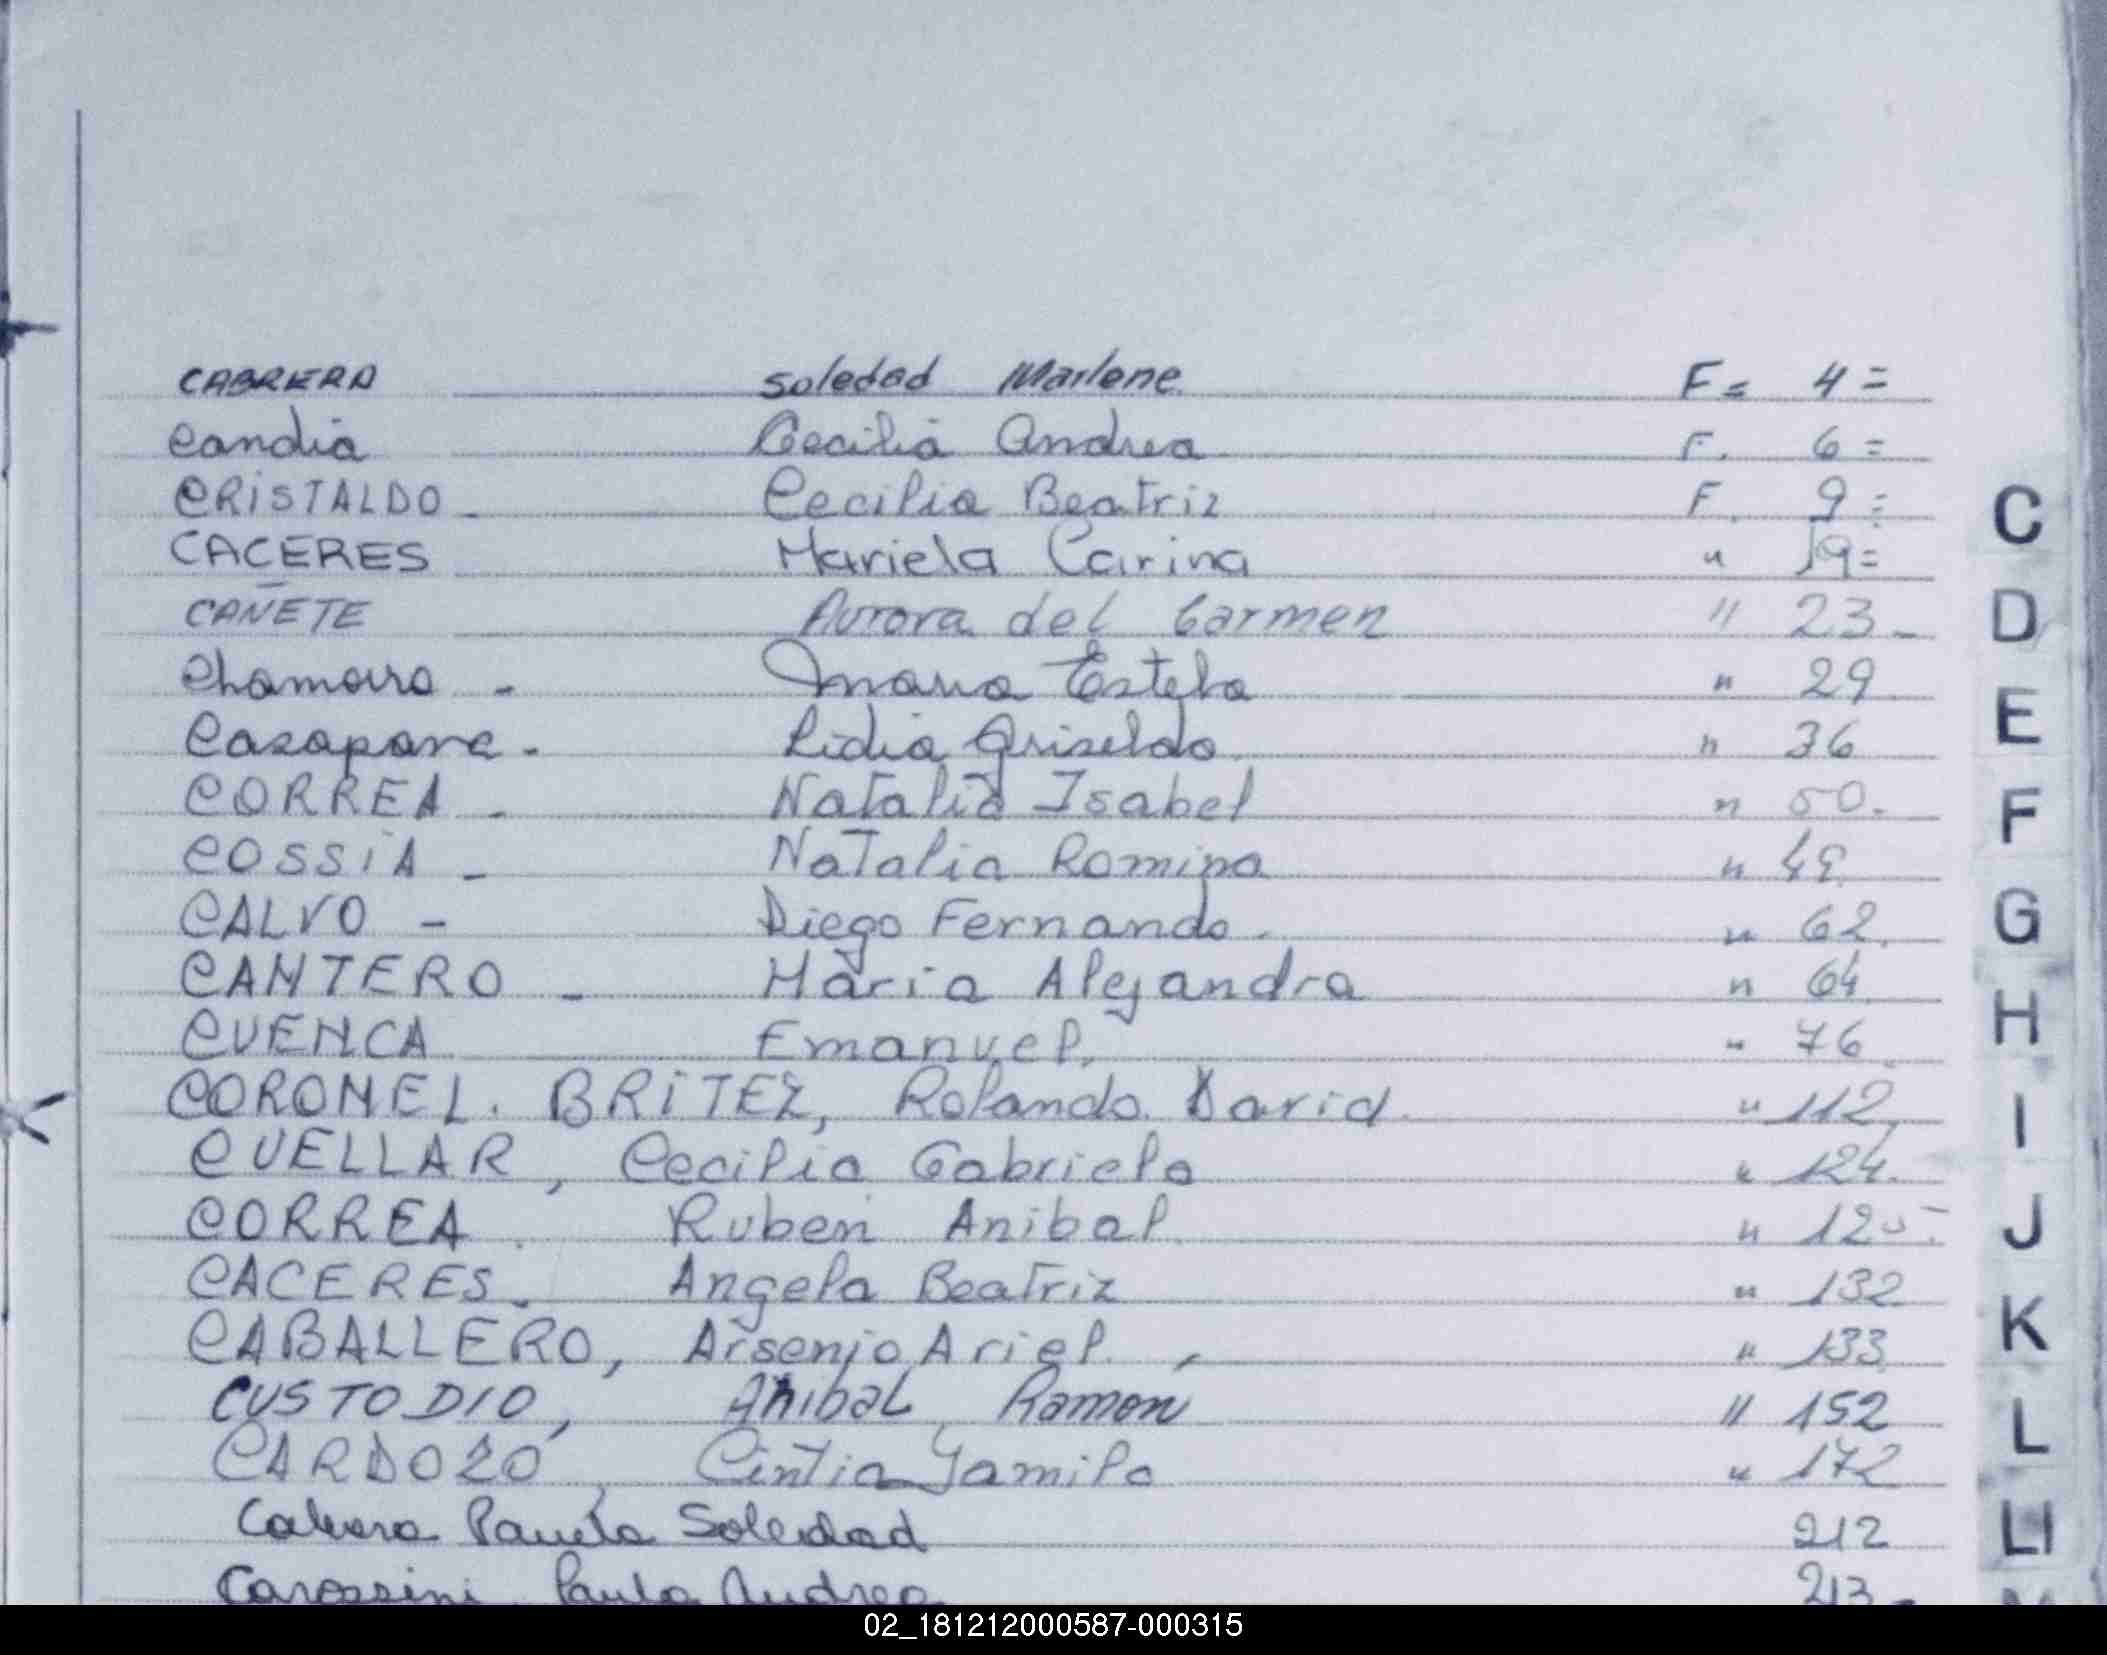 CABRERA Soledad Marlene F= 4=
Candia Cecilia Andrea F. 6=
CRISTALDO - Cecilia Beatriz F. 9=
CACERES Mariela Carina " 19=
CAÑETE Aurora del Carmen " 23-
Chamorro - Maria Estela " 29
Cazapava - Lidia Griselda " 36
CORREA - Natalia Isabel " 50.
COSSIA - Natalia Romina " 49
CALVO - Diego Fernando. " 62.
CANTERO - Maria Alejandra " 64
CUENCA Emanuel. " 76
CORONEL. BRITEZ, Rolando David. " 112
CUELLAR, Cecilia Gabriela " 124.
CORREA. Ruben Anibal. "
CACERES. Angela Beatriz " 132
CABALLERO, Arsenio Ariel. " 133
CUSTODIO, Anibal Ramon " 152
CARDOZO, Cintia Yamila " 172
Soledad 212
Carossini Paula Andrea 213-
C
D
E
F
G
H
I
J
K
L
Ll
02_181212000587-000315